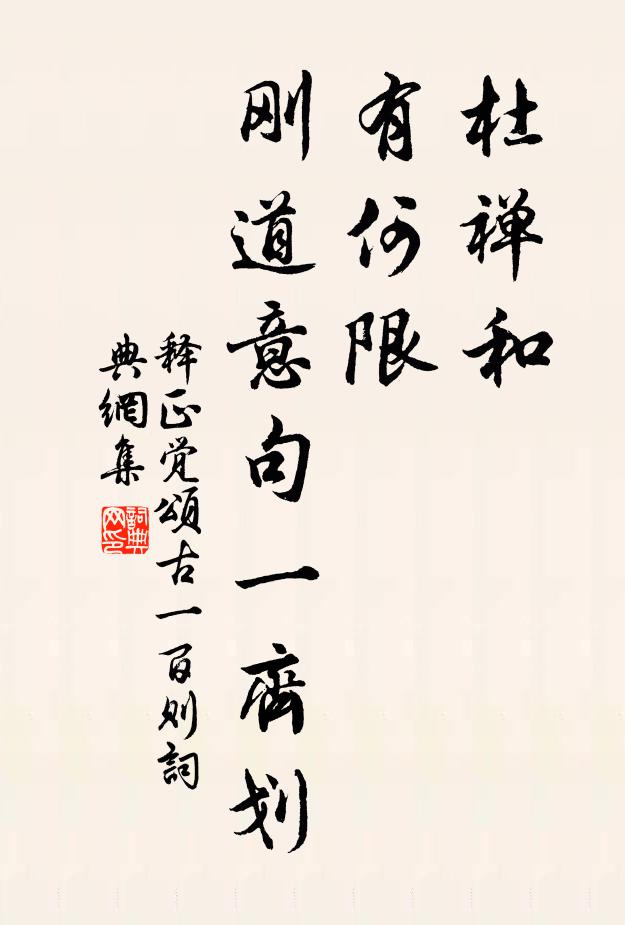 杜禅和
有何限
刚道意句一齊划
释正覚頌古一百则詞
典網集
詞典网印